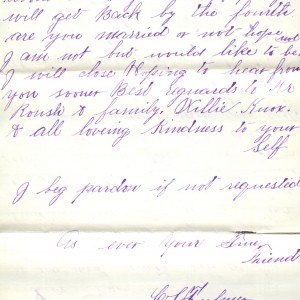 will get Back by the fourth
are you married or not hope not
I am not but would like to be
I will close Hoping to hear from
you sooner Best Reguards to Mr
Roush & family. Killie Knox.
& all loveing Kindness to your
Self
I beg pardon if not requested
As ever Your True
Friend